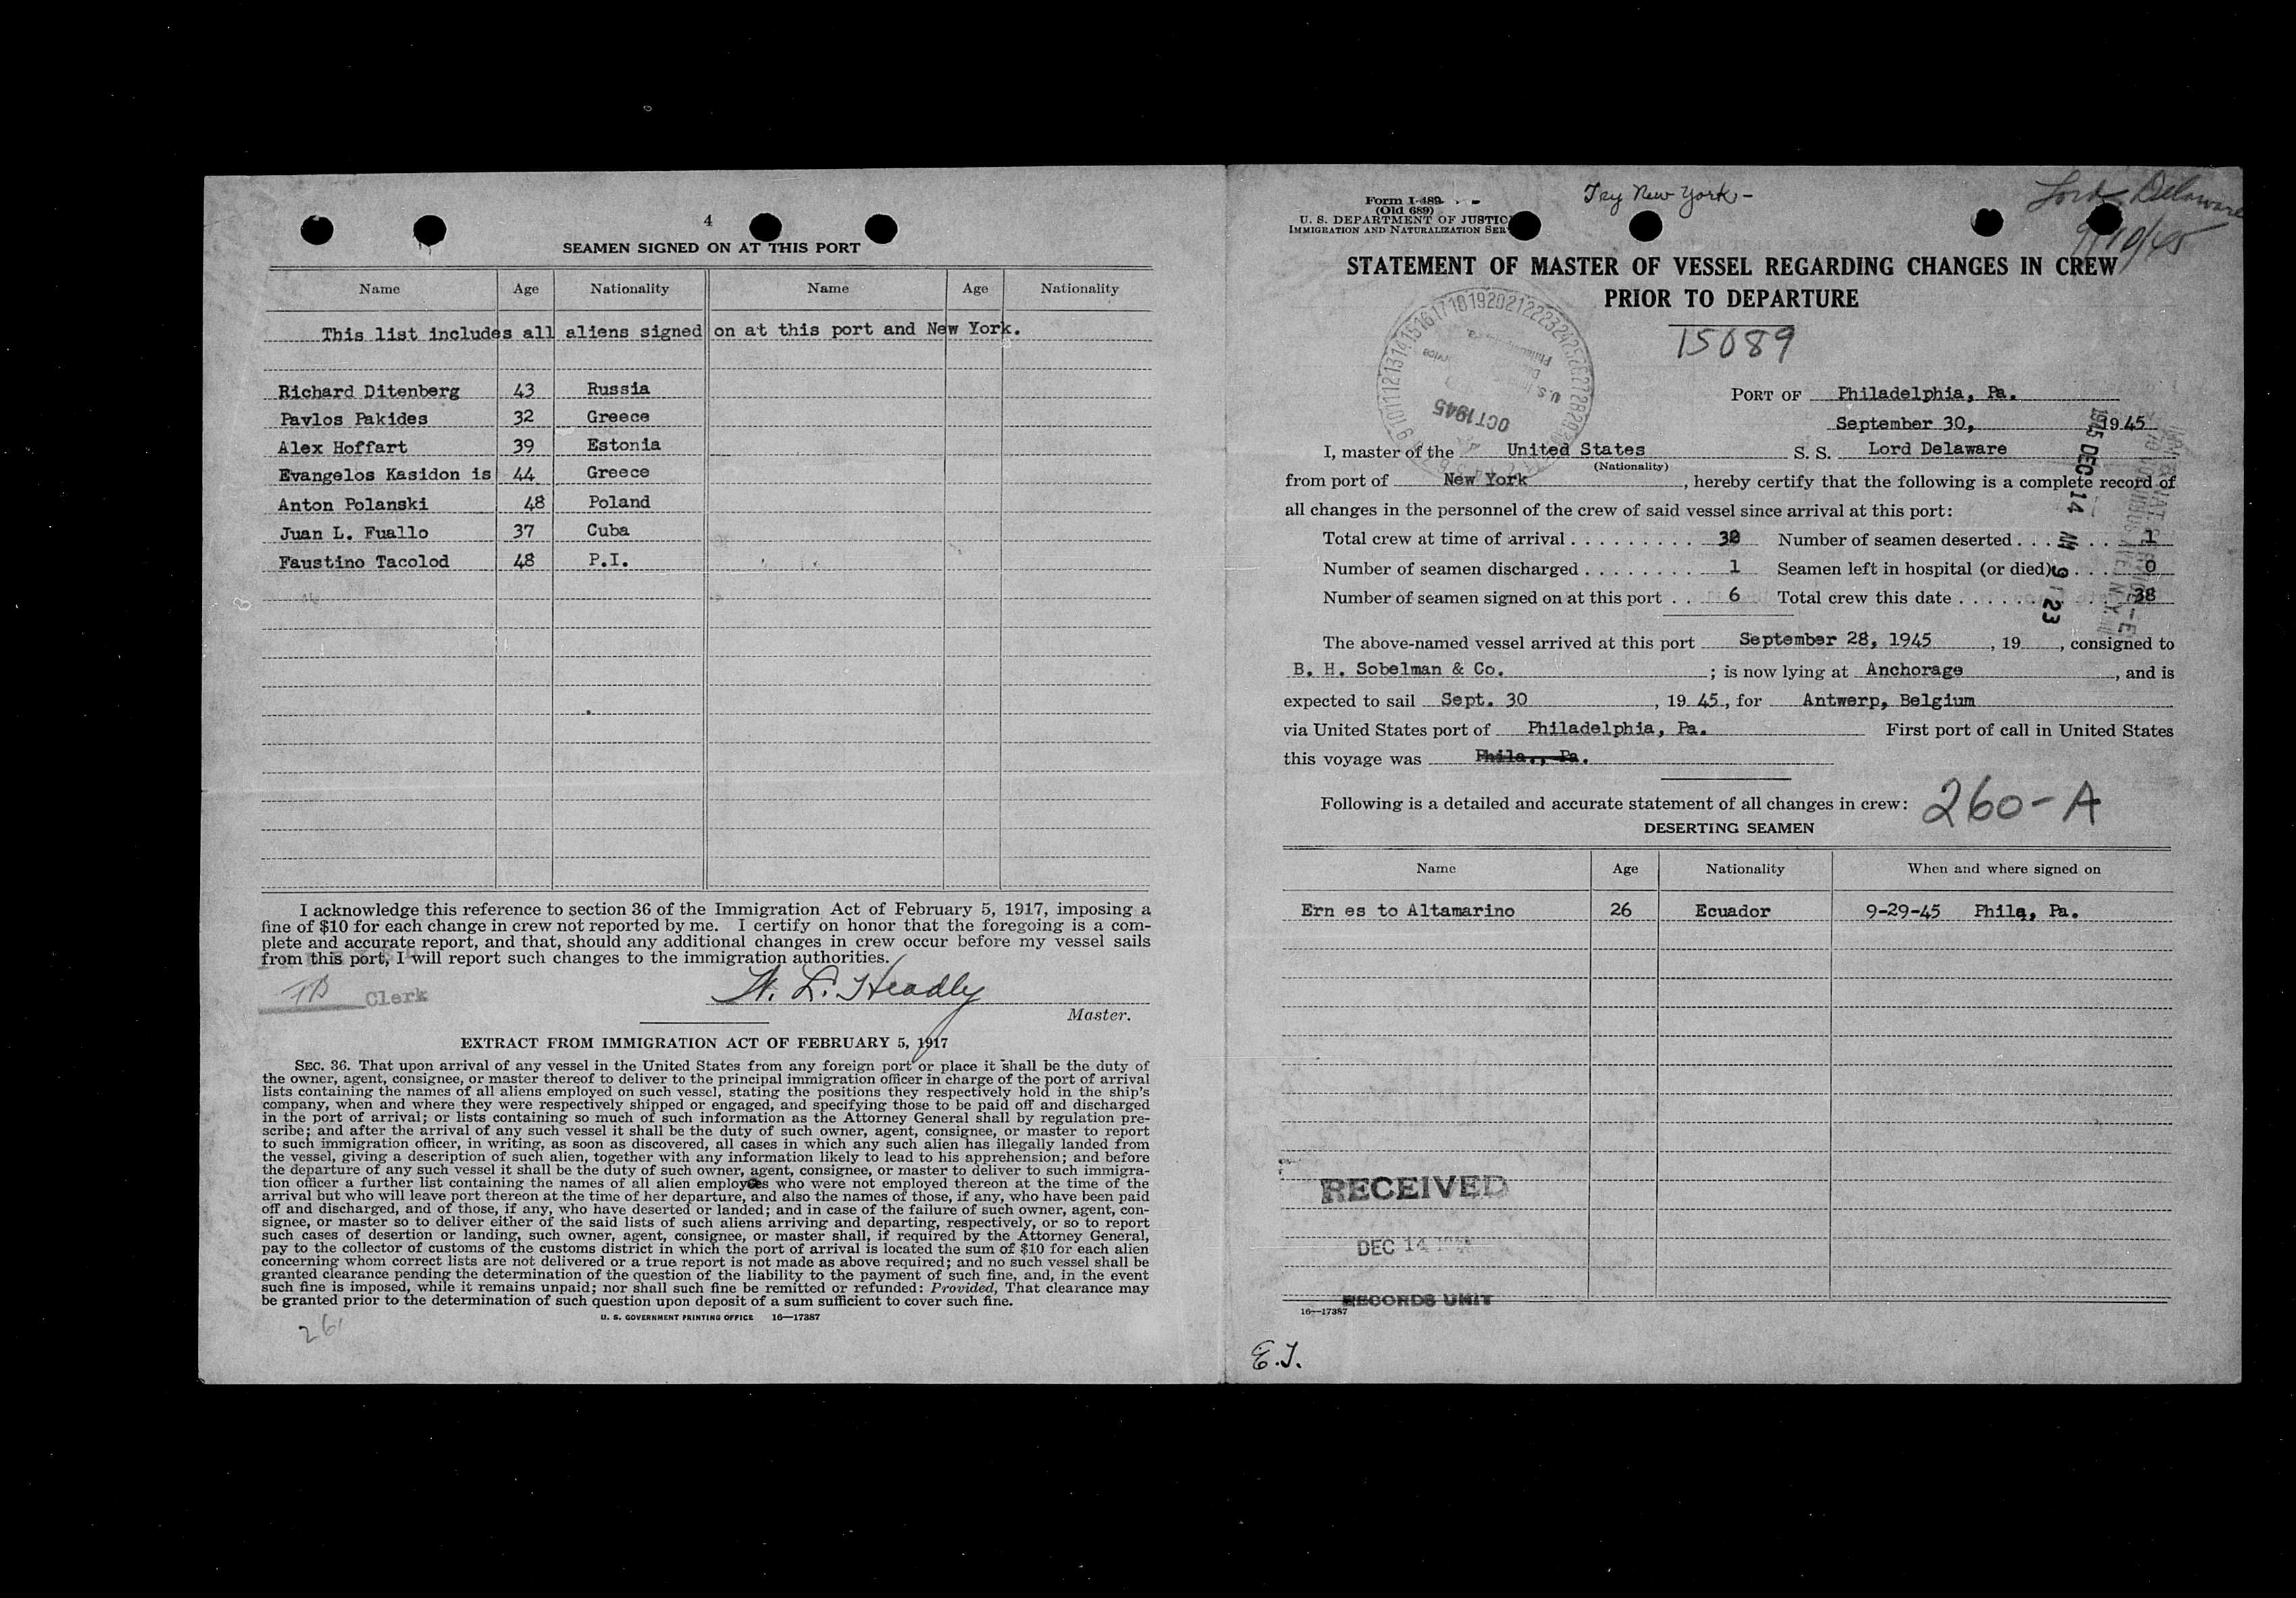 4
SEAMEN SIGNED ON AT THIS PORT
Name Age Nationality Name Age Nationality
This list includes all aliens signed on at this port and New York.
Richard Ditenberg 43 Russia
Pavlos Pakides 32 Greece
Alex Hoffart 39 Estonia
Evangelos Kasidon is 44 Greece
Anton Polanski 48 Poland
Juan L. Fuallo 37 Cuba
Faustino Tacolod 48 P.I.
I acknowledge this reference to section 36 of the Immigration Act of February 5, 1917, imposing a
fine of $10 for each change in crew not reported by me. I certify on honor that the foregoing is a com-
plete and accurate report, and that, should any additional changes in crew occur before my vessel sails
from this port, I will report such changes to the immigration authorities.
Clerk
W. L. Headly
Master.
EXTRACT FROM IMMIGRATION ACT OF FEBRUARY 5, 1917
SEC. 36. That upon arrival of any vessel in the United States from any foreign port or place it shall be the duty of
the owner, agent, consignee, or master thereof to deliver to the principal immigration officer in charge of the port of arrival
lists containing the names of all aliens employed on such vessel, stating the positions they respectively hold in the ship's
company, when and where they were respectively shipped or engaged, and specifying those to be paid off and discharged
in the port of arrival; or lists containing so much of such information as the Attorney General shall by regulation pre-
scribe; and after the arrival of any such vessel it shall be the duty of such owner, agent, consignee, or master to report
to such immigration officer, in writing, as soon as discovered, all cases in which any such alien has illegally landed from
the vessel, giving a description of such alien, together with any information likely to lead to his apprehension; and before
the departure of any such vessel it shall be the duty of such owner, agent, consignee, or master to deliver to such immigra-
tion officer a further list containing the names of all alien employees who were not employed thereon at the time of the
arrival but who will leave port thereon at the time of her departure, and also the names of those, if any, who have been paid
off and discharged, and of those, if any, who have deserted or landed; and in case of the failure of such owner, agent, con-
signee, or master so to deliver either of the said lists of such aliens arriving and departing, respectively, or so to report
such cases of desertion or landing, such owner, agent, consignee, or master shall, if required by the Attorney General,
pay to the collector of customs of the customs district in which the port of arrival is located the sum of $10 for each alien
concerning whom correct lists are not delivered or a true report is not made as above required; and no such vessel shall be
granted clearance pending the determination of the question of the liability to the payment of such fine, and, in the event
such fine is imposed, while it remains unpaid; nor shall such fine be remitted or refunded: Provided, That clearance may
be granted prior to the determination of such question upon deposit of a sum sufficient to cover such fine.
U. S. GOVERNMENT PRINTING OFFICE 16—17387
Form I-489
(Old 689)
U. S. DEPARTMENT OF JUSTIC
IMMIGRATION AND NATURALIZATION SER
Try New York -
Lord Delaware
9/10/45
STATEMENT OF MASTER OF VESSEL REGARDING CHANGES IN CREW
PRIOR TO DEPARTURE
15089
OCT 1945
PORT OF Philadelphia, Pa.
September 30, 1945
I, master of the United States S. S. Lord Delaware
(Nationality)
from port of New York, hereby certify that the following is a complete record of
all changes in the personnel of the crew of said vessel since arrival at this port:
Total crew at time of arrival . . . . . . . . . Number of seamen deserted . . . . . . 1
Number of seamen discharged . . . . . . . . 1 Seamen left in hospital (or died) . . . . 0
Number of seamen signed on at this port . . 6 Total crew this date . . . . . . . . . . 38
1945 DEC 14 AM 9 23
The above-named vessel arrived at this port September 28, 1945, 19 , consigned to
B. H. Sobelman & Co. ; is now lying at Anchorage , and is
expected to sail Sept. 30 , 19 45, for Antwerp, Belgium
via United States port of Philadelphia, Pa. First port of call in United States
this voyage was Phila., Pa.
Following is a detailed and accurate statement of all changes in crew: 260-A
DESERTING SEAMEN
Name Age Nationality When and where signed on
Ern es to Altamarino 26 Ecuador 9-29-45 Phila, Pa.
RECEIVED
DEC 14
RECORDS UNIT
16—17387
E.J.